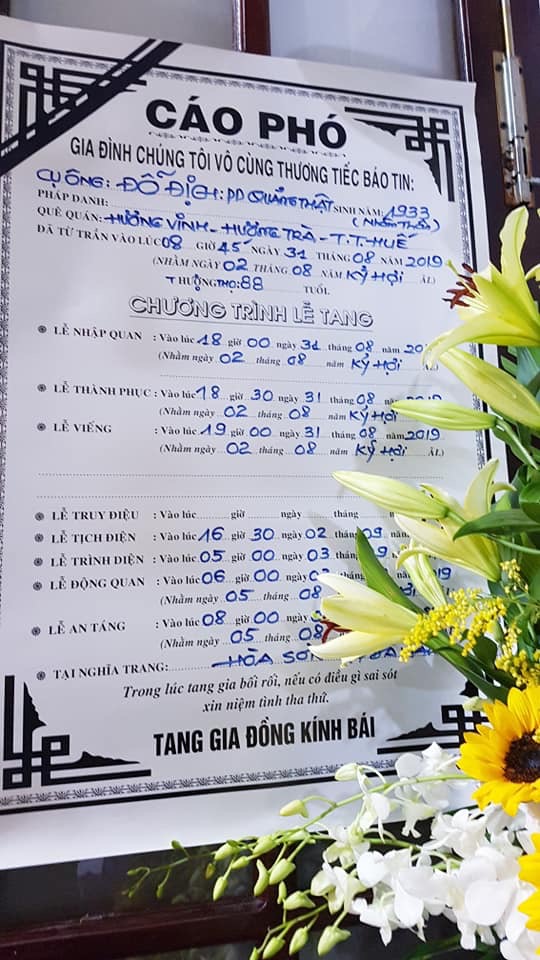 CÁO PHÓ
GIA ĐÌNH CHÚNG TÔI VÔ CÙNG THƯƠNG TIẾC BÁO TIN:
CỤ ÔNG: ĐỖ ĐỊCH: PD QUẢNG THẬT
PHÁP DANH: SINH NĂM: 1933
(Nhâm Thân)
QUÊ QUÁN: HƯƠNG VINH - HƯƠNG TRÀ - T.T. HUẾ
ĐÃ TỪ TRẦN VÀO LÚC 08 GIỜ 45 NGÀY 31 THÁNG 08 NĂM 2019
(NHẰM NGÀY 02 THÁNG 08 NĂM KỶ HỢI ÂL)
THƯỢNG THỌ: 88 TUỔI.
CHƯƠNG TRÌNH LỄ TANG
LỄ NHẬP QUAN : Vào lúc 18 giờ 00 ngày 31 tháng 08 năm
(Nhằm ngày 02 tháng 08 năm KỶ HỢI
LỄ THÀNH PHỤC : Vào lúc 18 giờ 30 ngày 31 tháng 08 năm 2019
(Nhằm ngày 02 tháng 08 năm KỶ HỢI
LỄ VIẾNG : Vào lúc 19 giờ 00 ngày 31 tháng 08 năm 2019
(Nhằm ngày 02 tháng 08 năm KỶ HỢI ÂL)
LỄ TRUY ĐIỆU : Vào lúc giờ ngày tháng
LỄ TỊCH ĐIỆN : Vào lúc 16 giờ 30 ngày 02 tháng 09
LỄ TRÌNH DIỆN : Vào lúc 05 giờ 00 ngày 03 tháng 9
LỄ ĐỘNG QUAN : Vào lúc 06 giờ 00 ngày
(Nhằm ngày 05 tháng 08
LỄ AN TÁNG : Vào lúc 08 giờ 00
(Nhằm ngày 05 tháng 08
TẠI NGHĨA TRANG: HÒA SƠN
Trong lúc tang gia bối rối, nếu có điều gì sai sót
xin niệm tình tha thứ.
TANG GIA ĐỒNG KÍNH BÁI